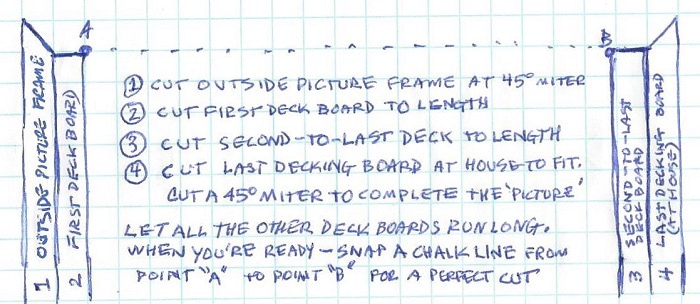 A
B
① CUT OUTSIDE PICTURE FRAME AT 45° MITER
② CUT FIRST DECK BOARD TO LENGTH
③ CUT SECOND-TO-LAST DECK TO LENGTH
④ CUT LAST DECKING BOARD AT HOUSE TO FIT.
CUT A 45° MITER TO COMPLETE THE "PICTURE"
LET ALL THE OTHER DECK BOARDS RUN LONG.
WHEN YOU'RE READY – SNAP A CHALK LINE FROM
POINT "A" TO POINT "B" FOR A PERFECT CUT
1 OUTSIDE PICTURE FRAME
2 FIRST DECK BOARD
3 SECOND-TO-LAST
DECK BOARD
4 LAST DECKING BOARD
(AT HOUSE)